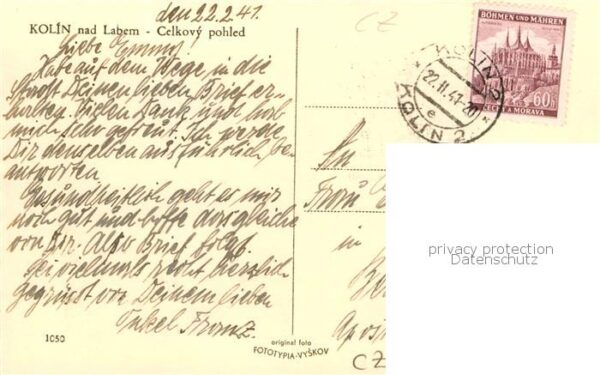 den 22.2.41.
CZ
KOLÍN nad Labem - Celkový pohled
Liebe Emmy!
Habe auf dem Wege in die
Stadt Deinen lieben Brief er-
halten. Vielen Dank und hab
mich sehr gefreut. Ich werde
Dir denselben ausführlich be-
antworten.
Gesundheitlich geht es mir
noch gut und hoffe das gleiche
von Dir. Also Brief folgt.
Sei vielmals recht herzlich
gegrüsst von Deinem lieben
Onkel Franz.
1050
original foto
FOTOTYPIA-VYŠKOV
BÖHMEN UND MÄHREN
60h
ČECHY A MORAVA
KOLÍN 2
22.II.41-20
e
KOLIN 2
An
Frau
in
CZ
privacy protection
Datenschutz